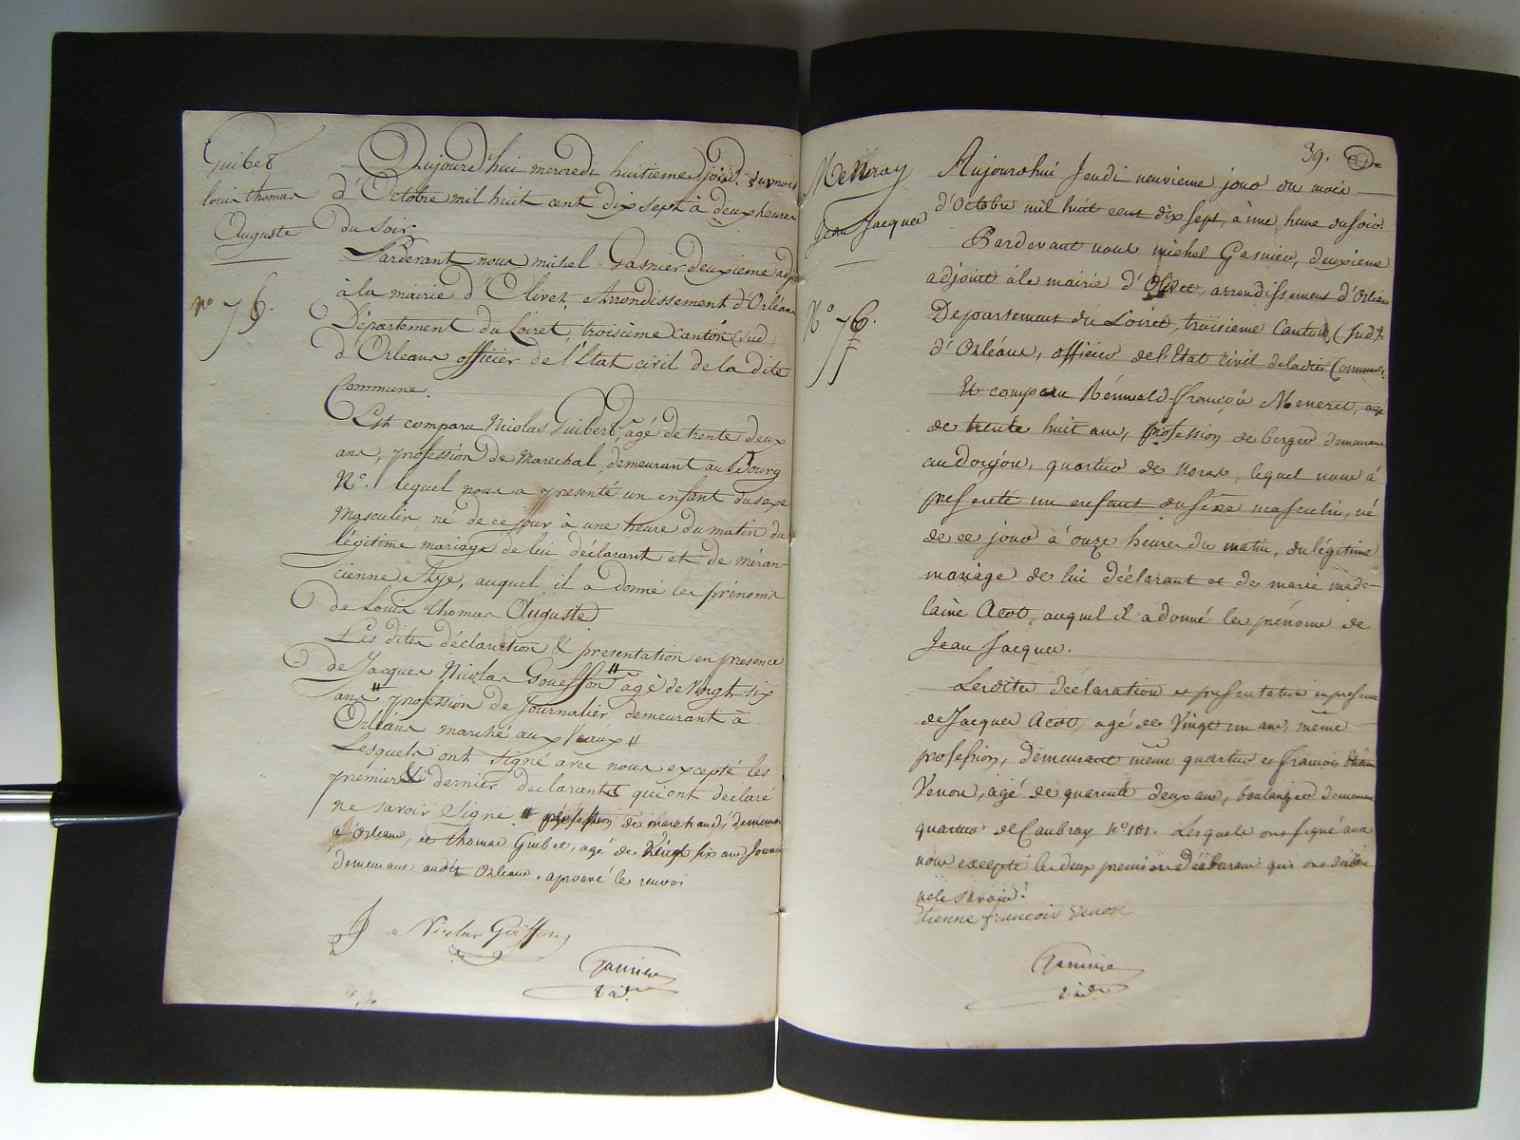 Guibet
louis thomas
Auguste
n° 75.
Aujourd'hui mercredi huitieme jour du mois
d'Octobre mil huit cent dix sept à deux heures
du Soir.
Pardevant nous michel Gasnier deuxieme adjt
à la mairie d'Olivet, Arrondissement d'Orléans
Département du Loiret, troisième Canton (sud)
d'Orleans officier de l'Etat civil de la dite
Commune.
Est comparu Nicolas Guibert, agé de trente deux
ans, profession de Marechal, demeurant au Bourg
N°. lequel nous a presenté un enfant du sexe
Masculin né de ce jour à une heure du matin du
légitime mariage de lui déclarant et de
Aye, auquel il a donné les prénoms
de Louis thomas Auguste
Les dites déclaration & presentation en presence
de Jacques Nicolas Goueffon " agé de vingt six
ans " profession de Journalier, demeurant à
Orléans marché aux Veaux "
Lesquels ont signé avec nous excepté les
premier & dernier declarants qui ont declaré
ne savoir signer. " profession de marchand, demeurant
à Orléans, et thomas Guibet, agé de Vingt six ans
demeurant audit Orleans. aprouvé le renvoi
Nicolas
Gasnier
2 adt.
39.
Meneray
Jean Jacques
N° 76.
Aujourdhui Jeudi neuvieme jour du mois
d'Octobre mil huit cent dix sept, à une heure du soir
Pardevant nous michel Gasnier, deuxieme
adjoint à la mairie d'Olivet, arrondissement d'Orleans
Departement du Loiret, troisieme Canton, (sud)
d'Orléans, officier de l'Etat civil de la dite Commune.
Est comparu Rénuald françois Meneret, agé
de trente huit ans, profession de berger demeurant
au Donjon, quartier de Noras, lequel nous à
presenté un enfant du sexe masculin, né
de ce jour à onze heures du matin, du légitime
mariage de lui déclarant et de marie made-
laine Acot, auquel il a donné les prénoms de
Jean Jacques.
Lesdites déclaration et presentation en presence
de Jacques Acot, agé de Vingt un ans, même
profession, demeurant même quartier et francois
Venon, agé de quarente deux ans, boulanger demeurant
quartier de Caubray N° 101. Lesquels ont signé avec
nous excepté les deux premiers déclarans qui ont déclaré
ne le savoir.
Etienne francois Venon
Gasnier
2 adt